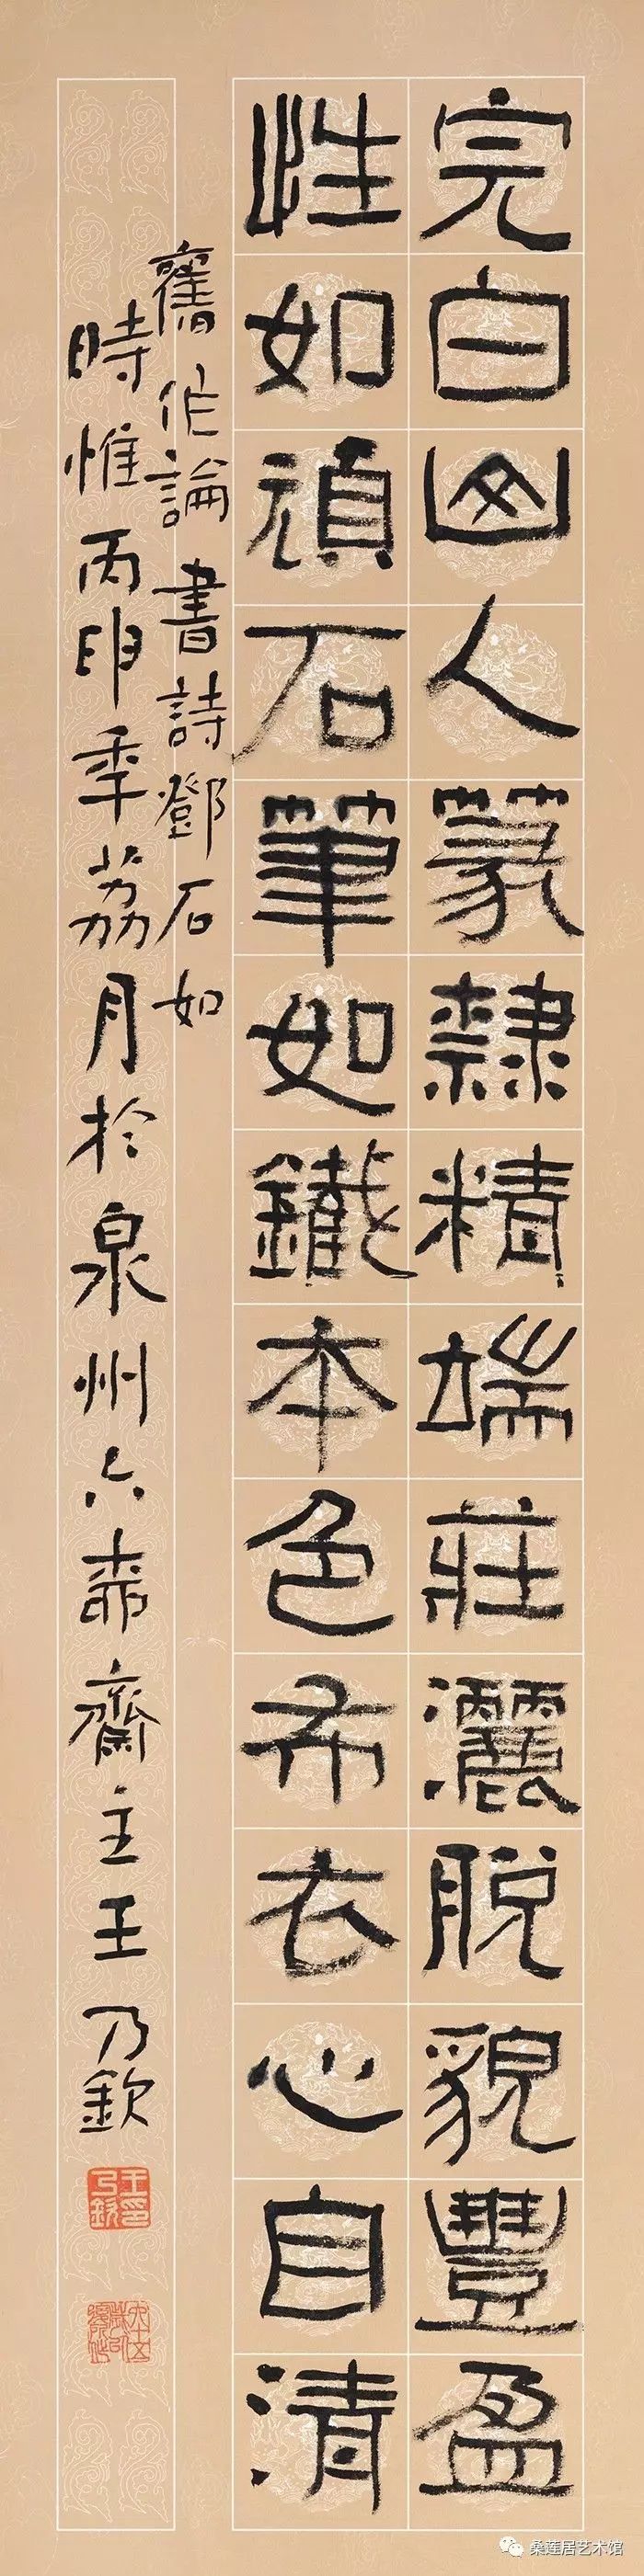 完白山人篆隸精端莊灑脫貌豐盈
性如頑石筆如鐵本色布衣心自清
舊作論書詩鄧石如
時惟丙申季荔月於泉州六壺齋主王乃欽
王乃欽印
桑莲居艺术馆